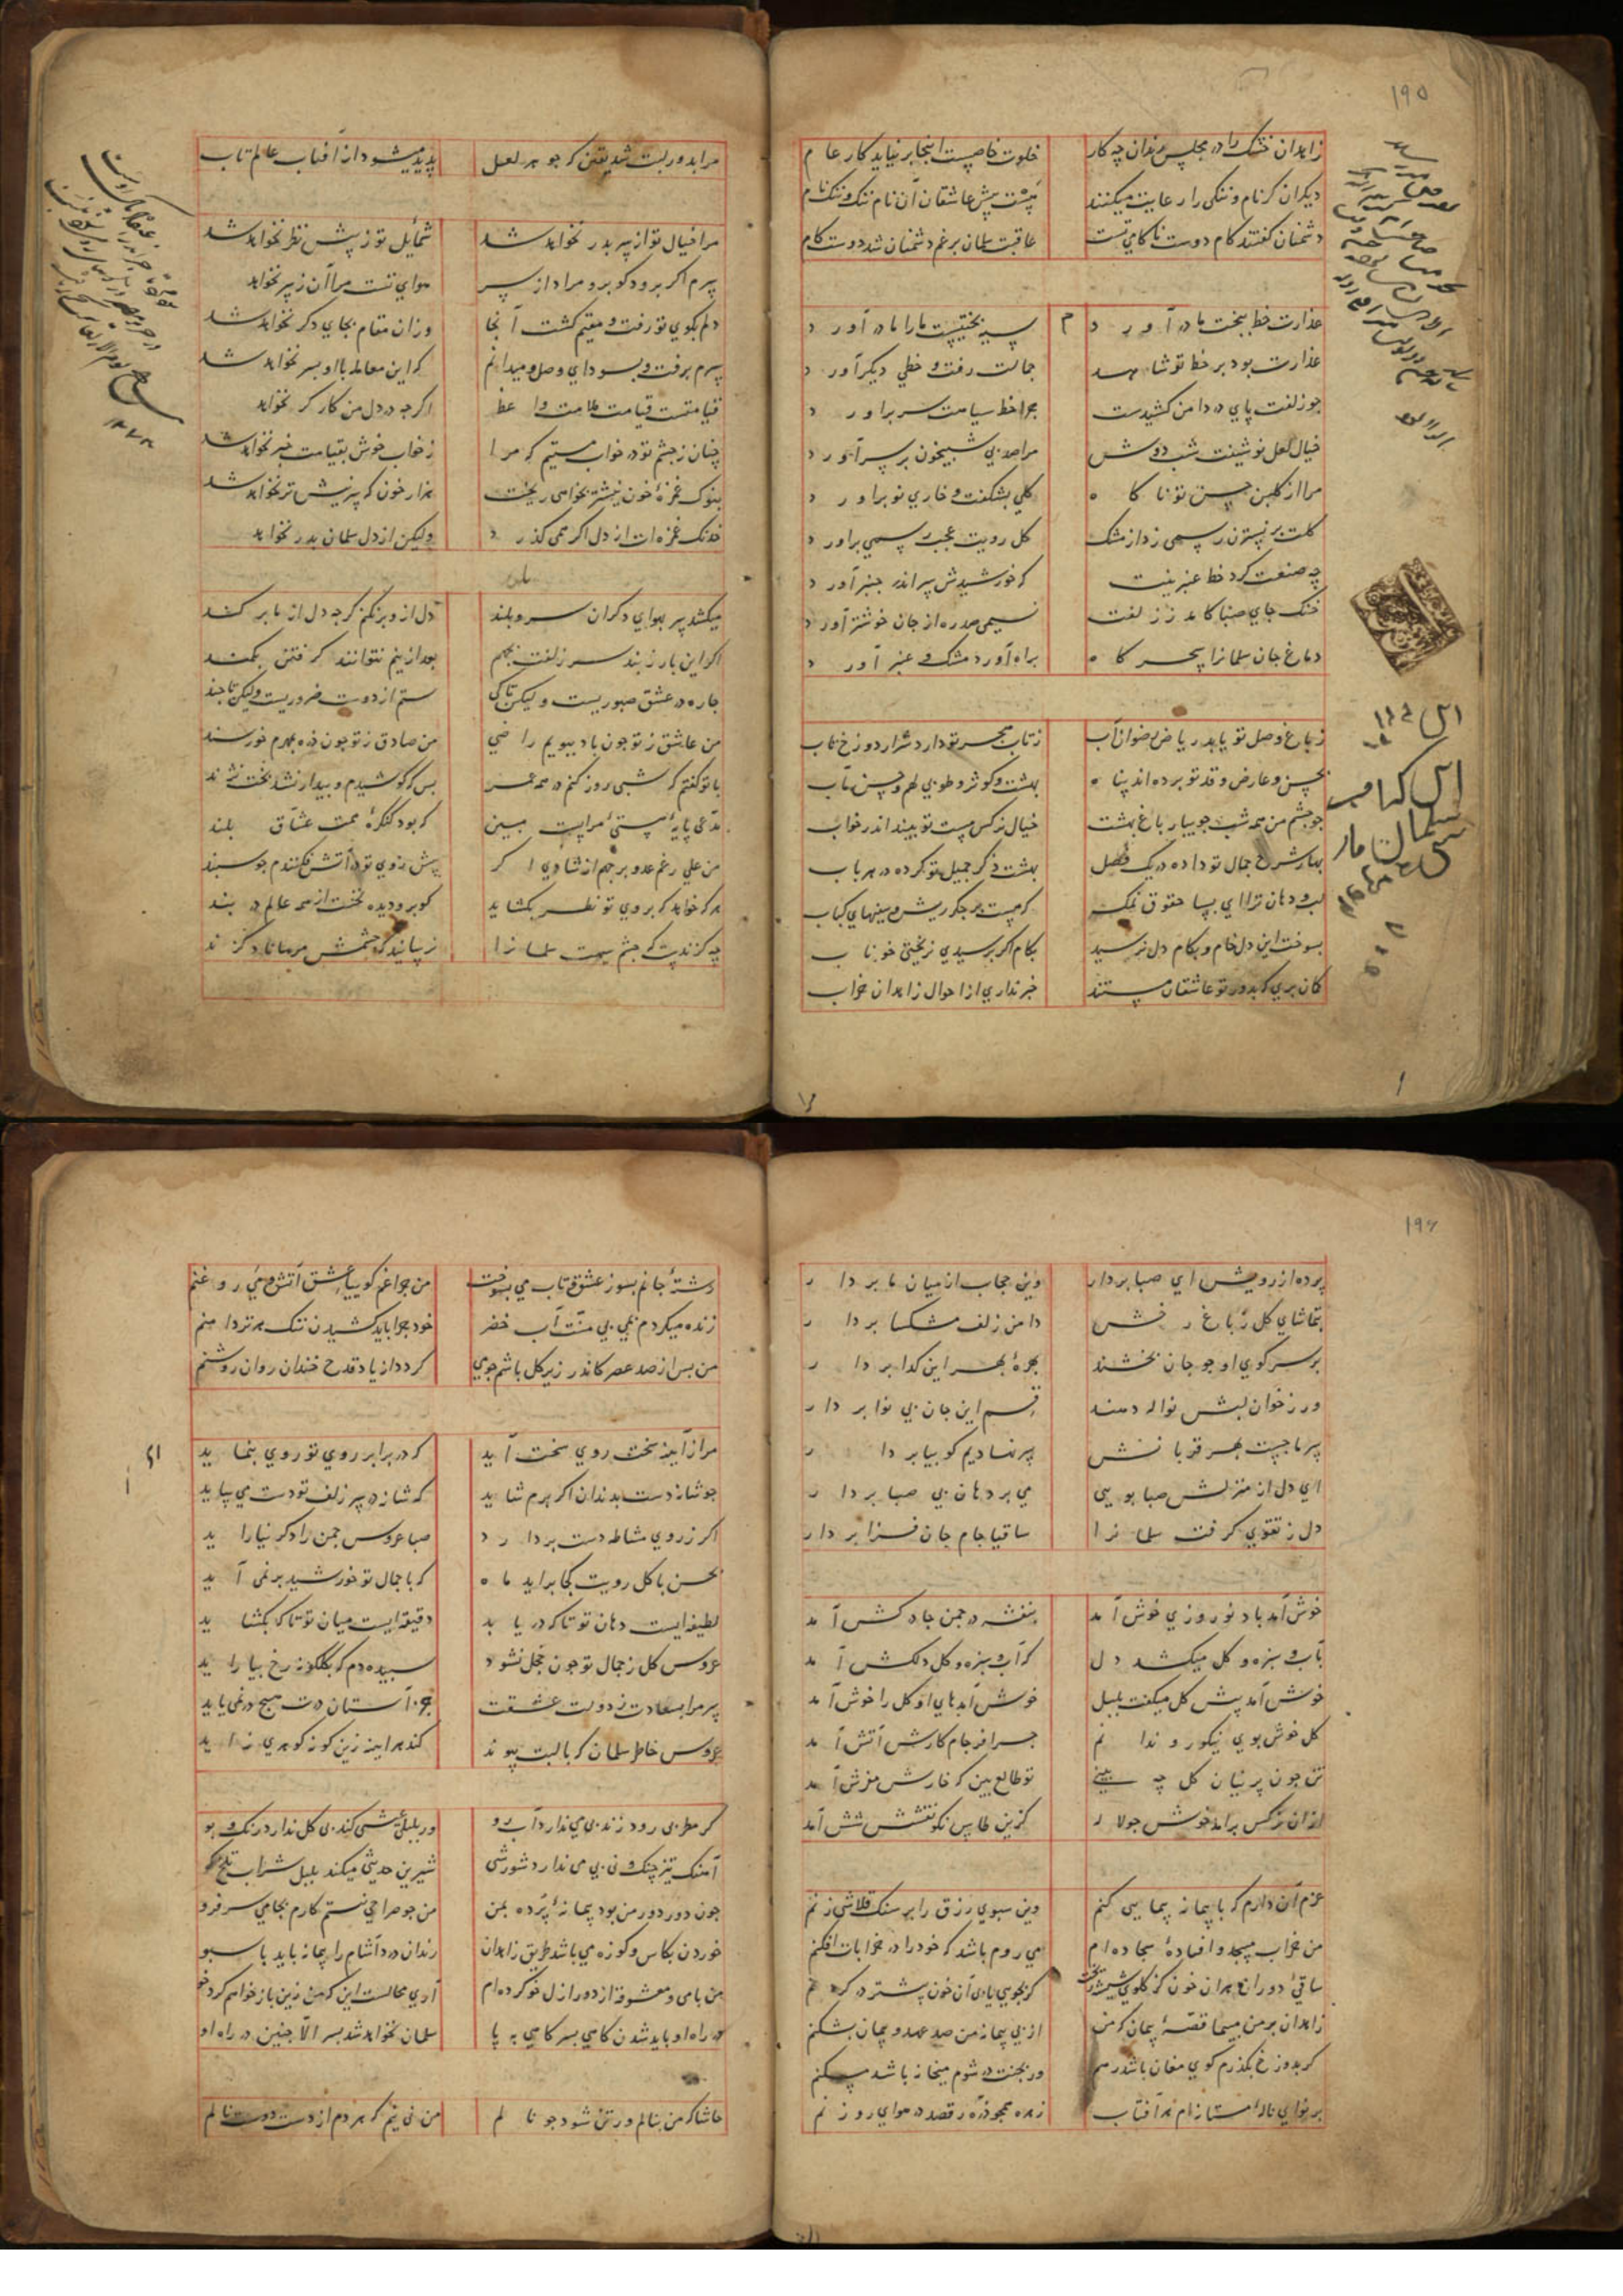 ۱۹۵
زاهدان خشک را در مجلس رندان چه کار خلوت خاصیست اینجا بر نیاید کار عام
دیکران کر نام و ننکی را رعایت میکنند نیست پیش عاشقان آن نام ننک و ننک نام
دشمنان کفتند کام دوست ناکامی تست عاقبت سلمان برغم دشمنان شد دوست کام
عذارت خط ببخت ما در آورد
عذارت بود بر خط تو شاهد جمالت رفت و خطی دیکر آورد
جو زلفت پای در دامن کشیدست جرا خط سیاهت سر بر آورد
خیال لعل نوشینت شب دوش مرا صد پی شبیخون بر سر آورد
مرا از کلبن حسن تو ناکاه کلی بشکفت و خاری نو بر آورد
کلت بر نسترن رسمی زد از مشک کل رویت عجب رسمی بر آورد
چه صنعت کرد خط عنبرینت که خورشیدش سر اندر جنبر آورد
خنک جای صبا کامد ز زلفت نسیمی صد ره از جان خوشتر آورد
دماغ جان سلمانرا سحرکاه براه آورد مشک و عنبر آورد
ز باغ وصل تو یابد ریاض رضوان آب ز تاب هجر تو دارد شرار دوزخ تاب
بحسن و عارض و قد تو برده اند پناه بهشت و کوثر و طوبی لهم و حسن مآب
جو جشم من همه شب جویبار باغ بهشت خیال نرکس مست تو بیند اندر خواب
بهار شرح جمال تو داده در یک فصل بهشت ذکر جمیل تو کرده در هر باب
لب و دهان ترا ای بسا حقوق نمک که هست بر جکر ریش و سینهای کباب
بسوخت این دل خام و بکام دل نرسید بکام اکر برسیدی نریختی خوناب
کمان بری که بدور تو عاشقان مستند خبر نداری از احوال زاهدان خراب
مرا بدور لبت شد یقین که جوهر لعل پدید میشود از آفتاب عالم تاب
مرا خیال تو از سر بدر نخواهد شد شمایل تو ز پیش نظر نخواهد شد
سرم اکر برود کو برو مرا از سر هوای تست مرا آن ز سر نخواهد
دلم بکوی تو رفت و مقیم کشت آنجا وزان مقام بجای دکر نخواهد شد
سرم برفت و بسودای وصل و میدانم که این معامله با او بسر نخواهد شد
قیامتست قیامت ملامت واعظ اکرچه در دل من کارکر نخواهد
چنان ز جشم تو در خواب مستیم که مرا ز خواب خوش بقیامت خبر نخواهد شد
بنوک غمزه خون بخواهی ریخت هزار خون که سر نیش تر نخواهد شد
خدنک غمزه ات از دل اکر همی کذرد ولیکن از دل سلمان بدر نخواهد
میکشد سر بهوای دکران سرو بلند دل ازو بر نکنم کرچه دل از ما بر کند
اکر این بار ز بند سر زلفت بجهم بعد ازینم نتوانند کرفتن بکمند
جاره در عشق صبوریست ولیکن تا کی ستم از دوست ضروریست ولیکن تا جند
من عاشق ز تو جون باد ببویم راضی من صادق ز تو جون ذره بمهرم خورسند
با تو کفتم که شبی روز کنم در همه عمر بس که کوشیدم و بیدار نشد بخت نژند
مدعی پایه پستی مراپست مبین که بود کنکره همت عشاق بلند
من علی رغم عدو برجهم از شادی اکر پیش روی تو در آتش فکنندم جو سپند
هر که خواهد که بروی تو نظر بکشاید کو برو دیده نخست از همه عالم در بند
چه کزندست که جشم سیهت سلمانرا نرسانید که جشمش مرساناد کزند
۱۹۶
پرده از رویش ای صبا بردار وین حجاب از میان ما بردار
بتماشای کل ز باغ رخش دامن زلف مشکسا بردار
بر سر کوی او جو جان بخشند بهره بهر این کدا بردار
ور ز خوان لبش نواله دهند قسم این جان بی نوا بردار
سر ما جیست بهر قربانش سر نهادیم کو بیا بردار
ای دل از منزلش صبا بویی می برد هان پی صبا بردار
دل ز تقوی کرفت سلمانرا ساقیا جام جان فزا بردار
خوش آمد باد نوروزی خوش آمد بنفشه در جمن جادکش آمد
بآب و سبزه و کل میکشد دل که آب و سبزه و کل دلکش آمد
خوش آمد پیش کل میکفت بلبل خوش آمدهای او کل را خوش آمد
کل خوش بوی نیکو رو ندانم جرا فرجام کارش آتش آمد
تن جون پرنیان کل چه بینی تو طالع بین که خارش مفرش آمد
ازان نرکس بر آمد خوش جو لاله کزین طاس نکو نقشش شش آمد
عزم آن دارم که با پیمانه پیمایی کنم وین سبوی زرق را بر سنک قلاشی زنم
من خراب مسجد و افتاده سجاده ام می روم باشد که خود را در خرابات افکنم
ساقی دوران هر آن خون کز کلوی شیشه ریخت کر بجویی یابی آن خون بیشتر در کردنم
زاهدان بر من مپیما قصه پیمان که من از پی پیمانه من صد عهد و پیمان بشکنم
کر بدوزخ بکذرم کوی مغان باشد رهم ور بجنت در شوم میخانه باشد مسکنم
بر نوای ناله مستانه ام هر آفتاب زهره همجو ذره رقصد در هوای روزنم
رشته جانم بسوز عشق و تاب می بسوخت من جراغم کوییا عشق آتش و می روغنم
زنده میکردم بمی بی منت آب خضر خود جرا باید کشیدن ننک هر تر دامنم
من پس از صد عصر کاندر زیر کل باشم جو می کردد از یاد قدح خندان روان روشنم
مرا ز آینه سخت روی سخت آید که در برابر روی تو روی بنماید
جو شانه دست بدندان اکر برم شاید که شانه در سر زلف تو دست می ساید
اکر ز روی مشاطه دست بردارد صبا عروس جمن را دکر نیاراید
بحسن با کل رویت کجا براید ماه که با جمال تو خورشید بر نمی آید
لطیفه ایست دهان تو تا که دریابد دقیقه ایست میان تو تا که بکشاید
عروس کل ز جمال تو جون خجل نشود سپیده دم که بکلکونه رخ بیاراید
سر مرا بسعادت ز دولت عشقت بجز آستان درت هیچ در نمی یابد
عروس خاطر سلمان که با لبت پیوند کند هر آینه زین کونه کوهری زاید
کر مطربی رودی زند بی می ندارد آب رو ور بلبلی عیشی کند بی کل ندارد رنک و بو
آهنک تیز چنک و نی بی می ندارد شورشی شیرین حدیثی میکند بلبل شراب تلخ کو
جون دور دور من بود پیمانه پر ده بمن من جو صراحی نیستم کارم بجامی سر فرو
خوردن بکاس و کوزه می باشد طریق زاهدان رندان درد آشام را پیمانه باید یا سبو
من با می و معشوقه از دور ازل خو کرده ام آری محالست این که من زین باز خواهم کرد خو
در راه او باید شدن کاهی بسر کاهی به پا سلمان نخواهد شد بسر الا جنین در راه او
حاشا که من بنالم ور تن شود جو نالم من نی نیم که هر دم از دست دوست نالم